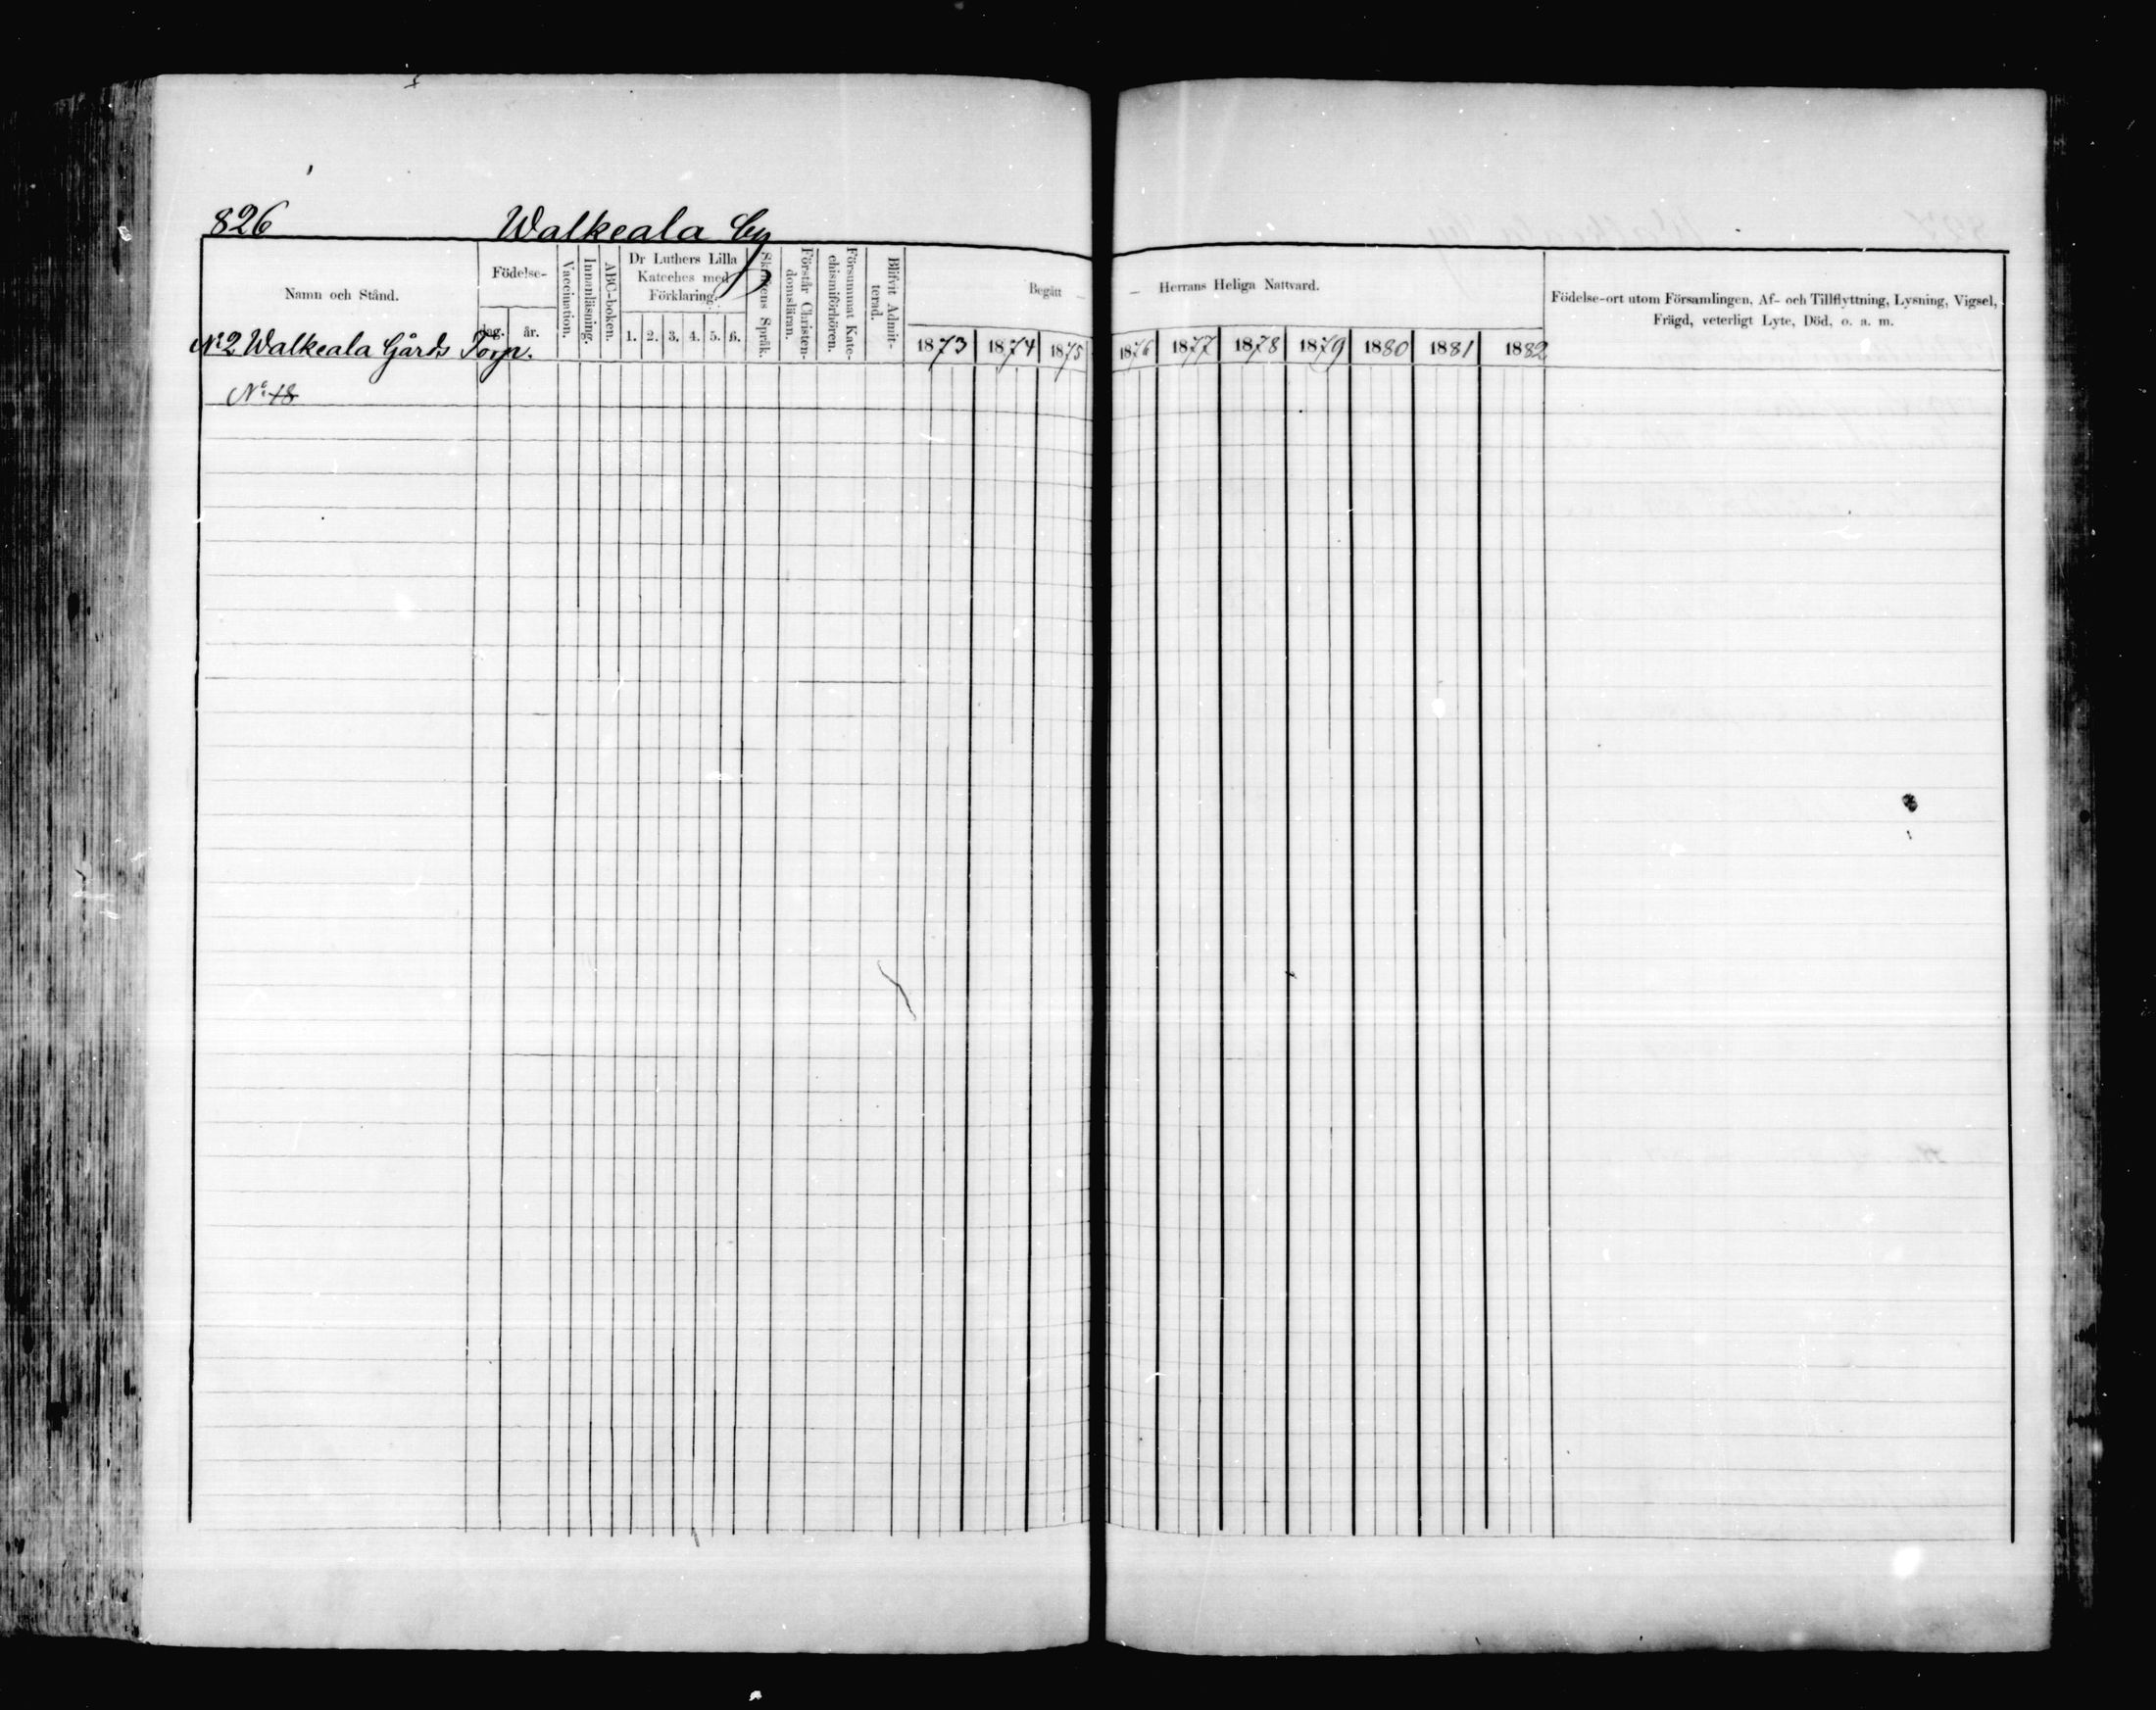 826 Walkeala by
Namn och Stånd.
Födelse-
dag.
år.
Vaccination.
Innanläsning.
ABC-boken.
Dr Luthers Lilla
Kateches med
Förklaring.
1. 2. 3. 4. 5. 6.
Skriftens Språk.
Förstår Christen-
domsläran.
Försummat Kate-
chismiförhören.
Blifvit Admit-
terad.
Begått — — Herrans Heliga Nattvard.
1873 1874 1875 1876 1877 1878 1879 1880 1881 1882
Födelse-ort utom Församlingen, Af- och Tillflyttning, Lysning, Vigsel,
Frägd, veterligt Lyte, Död, o. a. m.
No 2 Walkeala Gårds Torp.
No 18